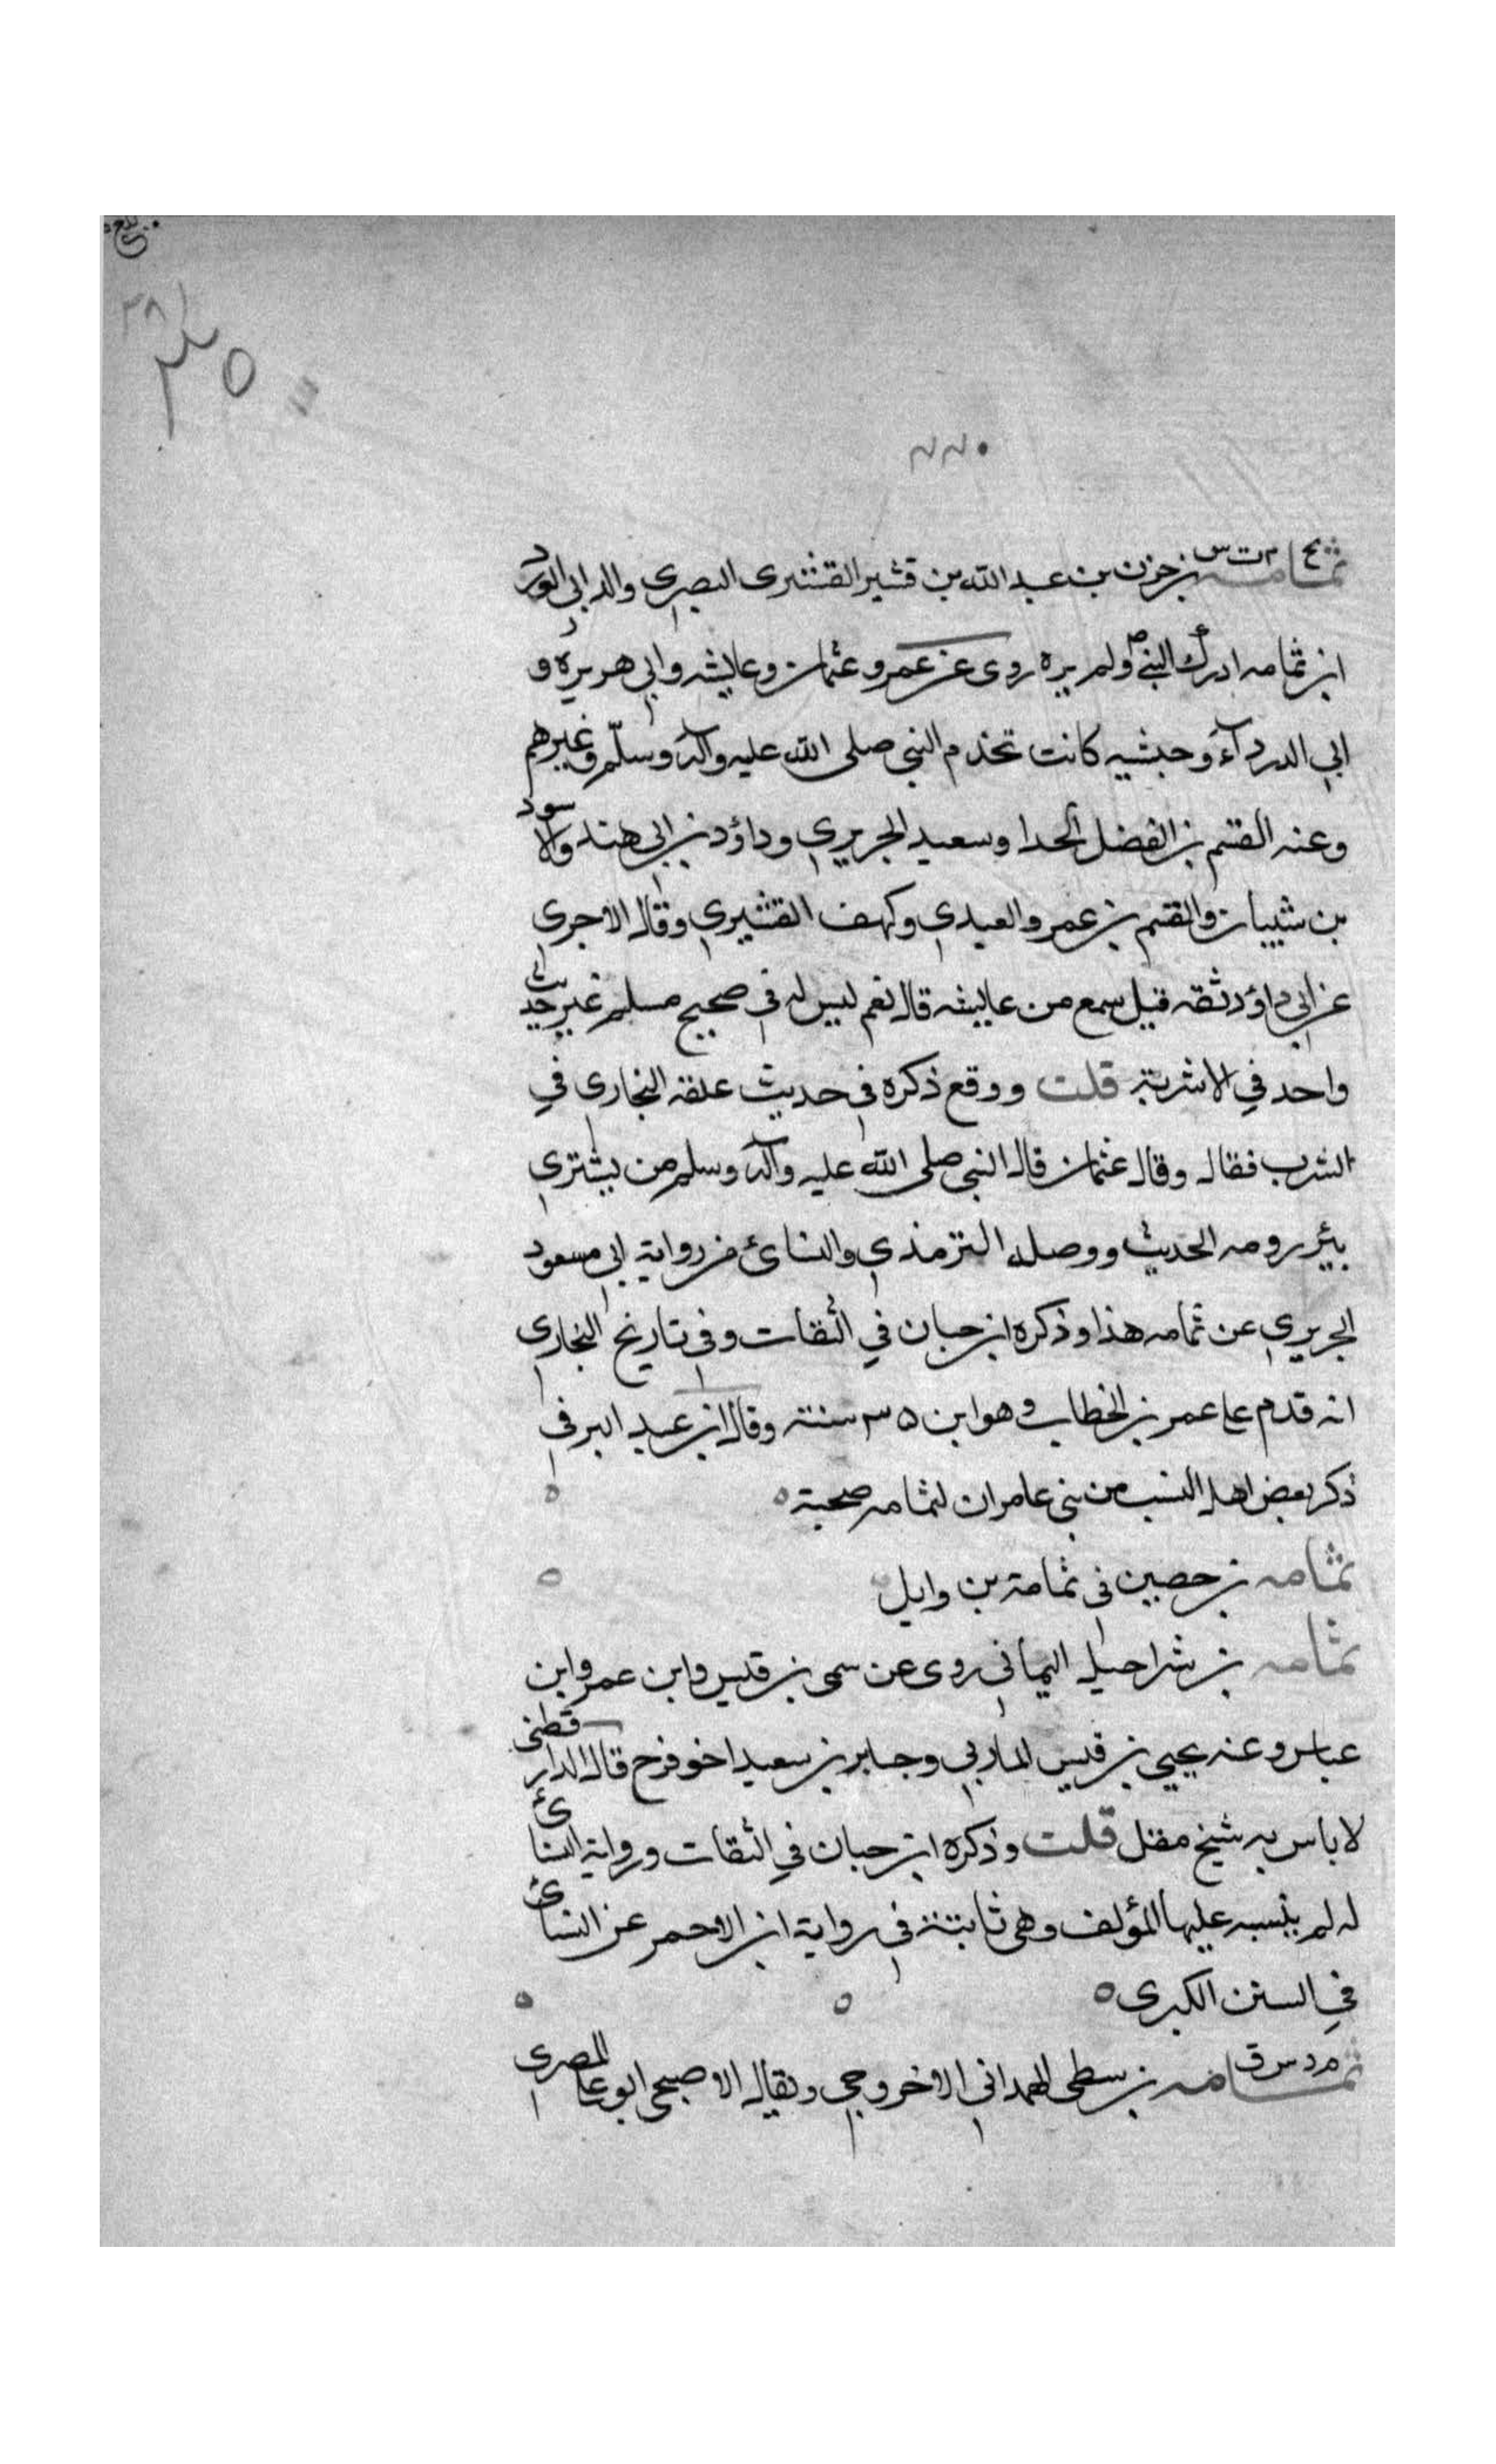 ٣٥
٢٢٠
بخ م ت س
ثمامه بن حزن بن عبد الله بن قشير القشيرى البصرى والد ابى الورد
ابن ثمامه ادرك النبى ولم يره روى عن عمر وعثمان وعايشه وابى هريره و
ابى الدرداء وحبشيه كانت تخدم النبى صلى الله عليه وآله وسلّم وغيرهم
وعنه القسم بن الفضل الحدا وسعيد الجريرى وداؤد بن ابى هند والاسود
بن شيبان والقسم بن عمرو العبدى وكهف القشيرى وقال الاجرى
عن ابى داؤد ثقه قيل سمع من عايشه قال نعم ليس له فى صحيح مسلم غير حديث
واحد في الاشربة قلت ووقع ذكره فى حديث علقه البخارى في
الشرب فقال وقال عثمان قال النبى صلى الله عليه وآله وسلم من يشترى
بئر رومه الحديث ووصله الترمذي والنسائ من رواية ابى مسعود
الجريري عن ثمامه هذا وذكره ابن حبان في الثقات وفى تاريخ البخارى
انه قدم على عمر بن الخطاب وهو ابن ٣٥ سنة وقال ابن عبد البر فى
ذكر بعض اهل النسب من بنى عامر ان لثمامه صحبة
ثمامه بن حصين فى ثمامة بن وايل
ثمامه بن شراحيل اليمانى روى عن سمى بن قيس وابن عمر وابن
عباس وعنه يحيى بن قيس الماربي وجابر بن سعيد اخو فرح قال الدارقطنى
لا باس به شيخ مقل قلت وذكره ابن حبان في الثقات ورواية النسائ
له لم ينسبه عليها المؤلف وهى ثابتة فى رواية ابن الاحمر عن النسائ
في السنن الكبرى
م د س ق
ثمامه بن شطى الهمدانى الاخروجي ويقال الاصبحى ابو على المصرى